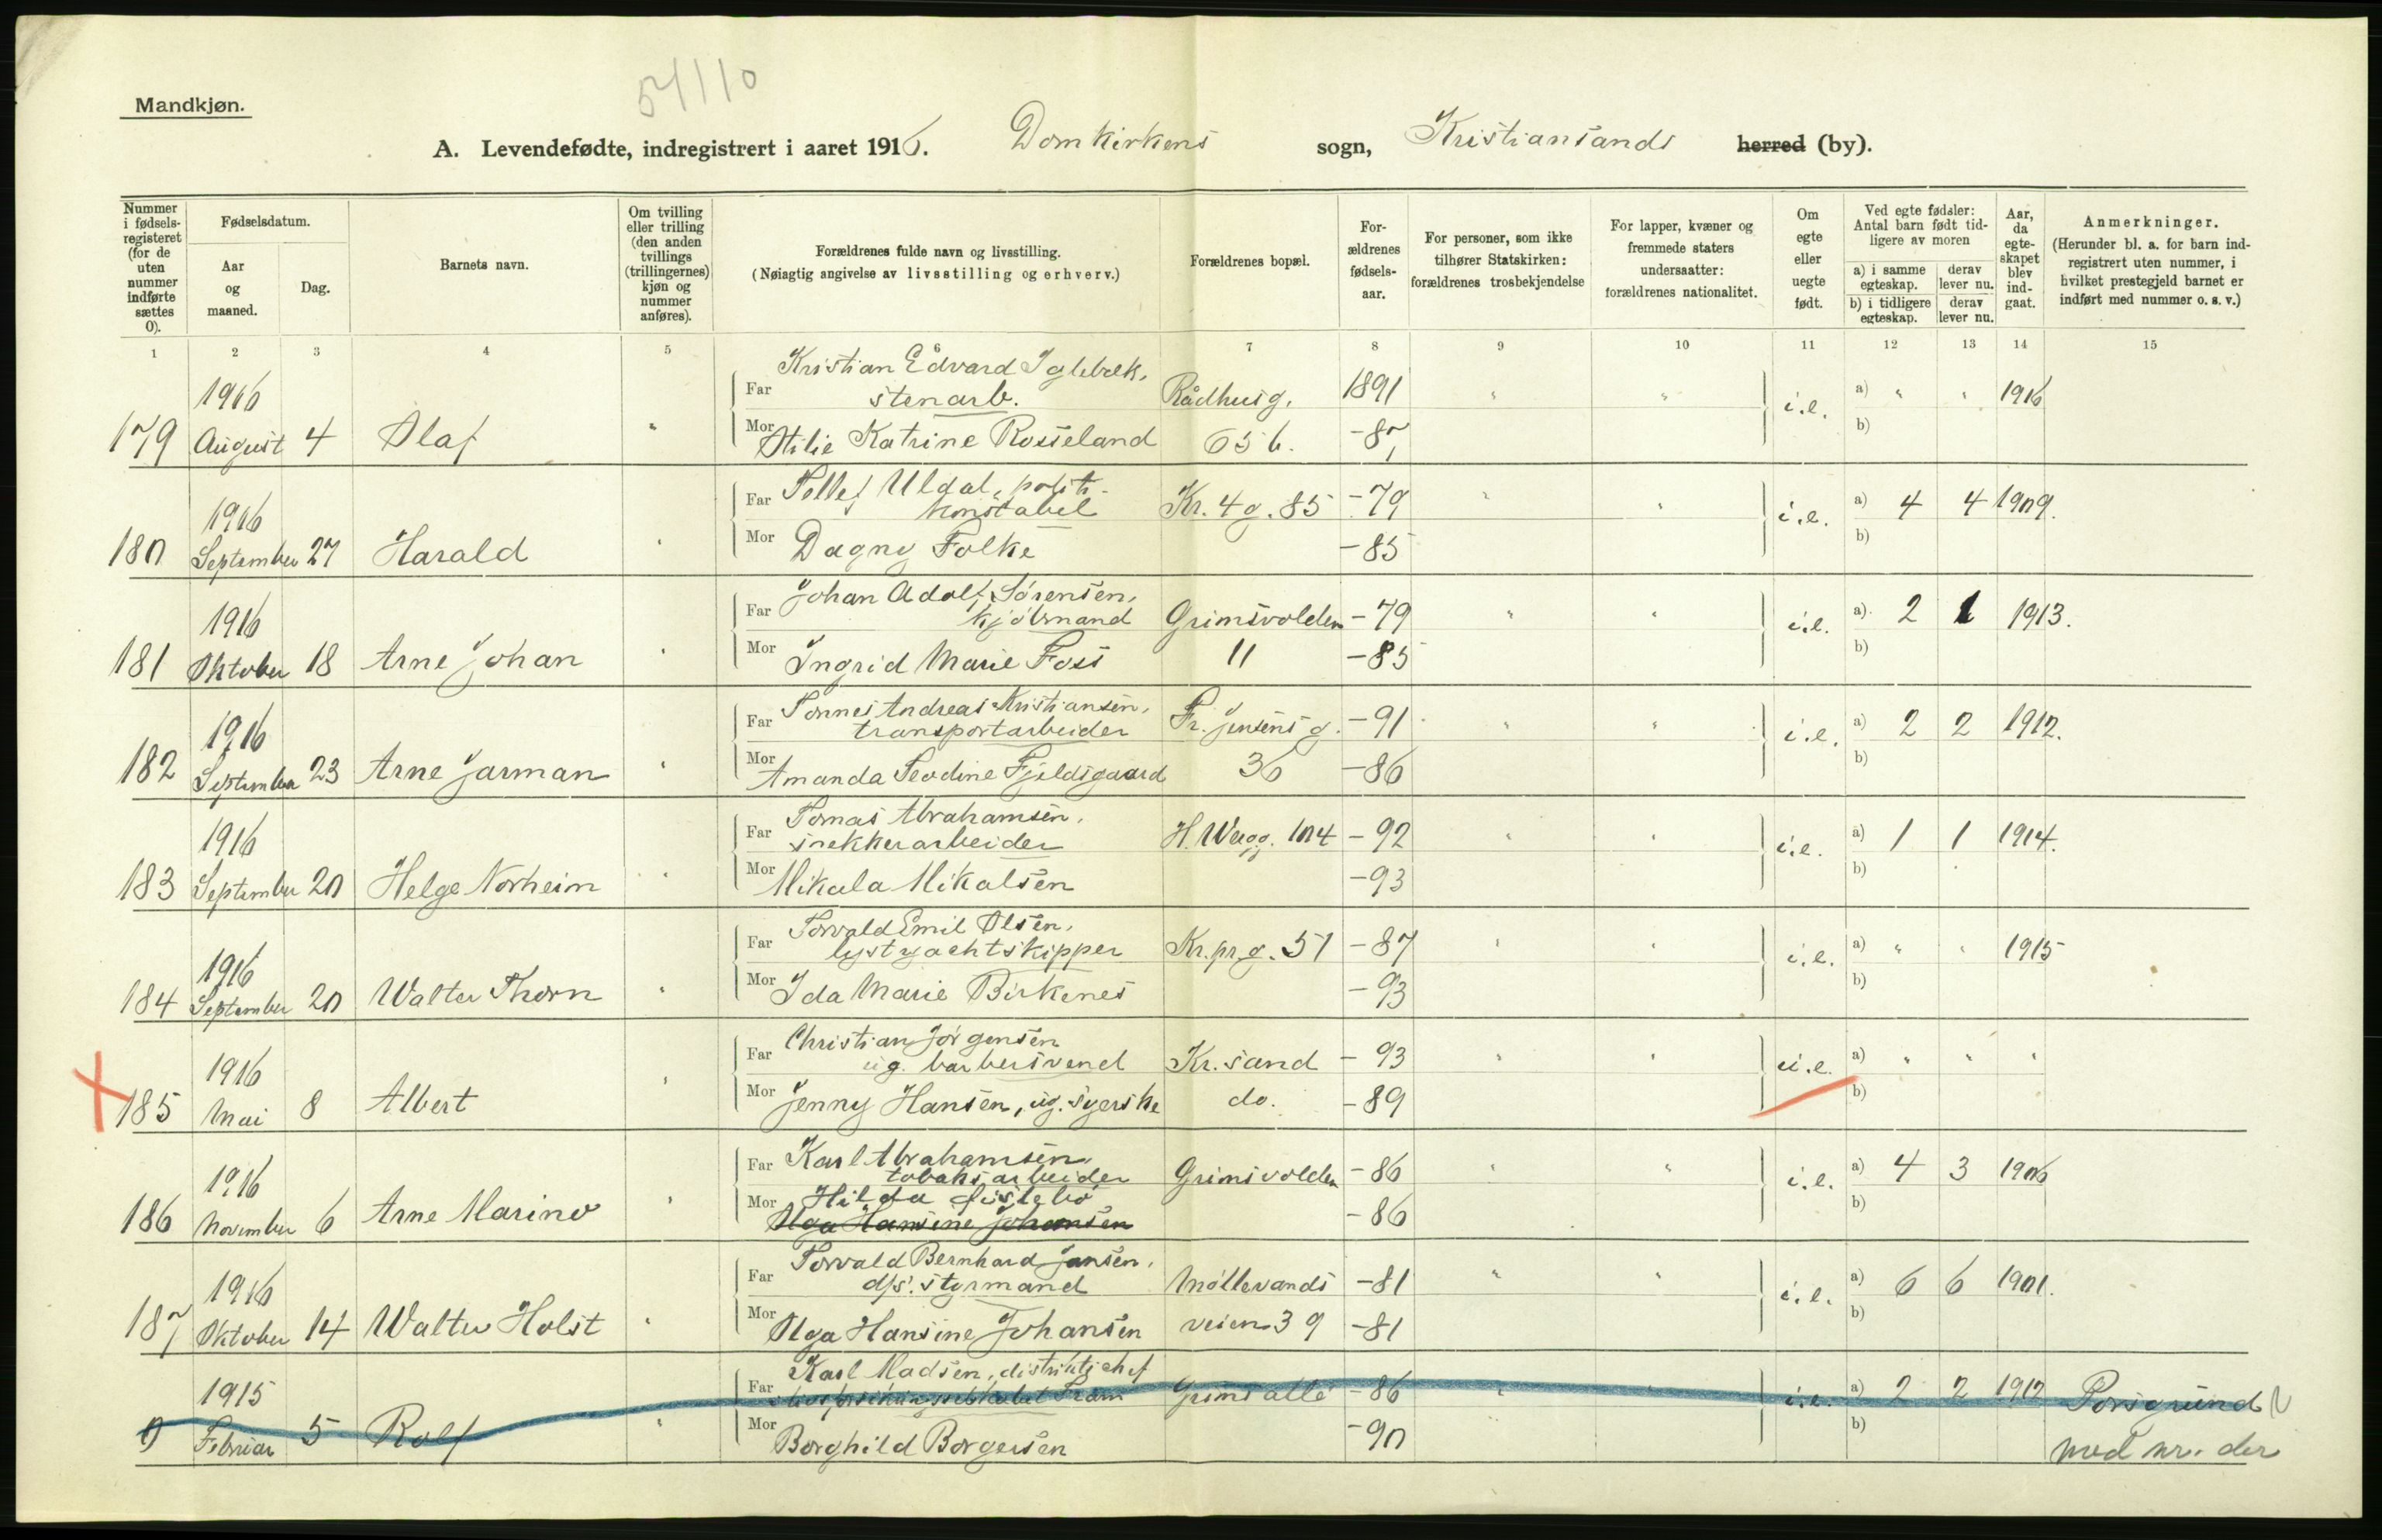 54110
Mandkjøn.
A. Levendefødte, indregistrert i aaret 1916. Domkirkens sogn, Kristiansands herred (by).
Nummer i fødsels-registeret (for de uten nummer indførte sættes 0).
Fødselsdatum.
Aar og maaned.
Dag.
Barnets navn.
Om tvilling eller trilling (den anden tvillings (trillingernes) kjøn og nummer anføres).
Forældrenes fulde navn og livsstilling.
(Nøiagtig angivelse av livsstilling og erhverv.)
Forældrenes bopæl.
For-ældrenes fødsels-aar.
For personer, som ikke tilhører Statskirken: forældrenes trosbekjendelse
For lapper, kvæner og fremmede staters undersaatter: forældrenes nationalitet.
Om egte eller uegte født.
Ved egte fødsler: Antal barn født tid-ligere av moren
a) i samme egteskap. derav lever nu.
b) i tidligere egteskap. derav lever nu.
Aar, da egte-skapet blev ind-gaat.
Anmerkninger.
(Herunder bl. a. for barn ind-registrert uten nummer, i hvilket prestegjeld barnet er indført med nummer o. s. v.)
1 2 3 4 5 6 7 8 9 10 11 12 13 14 15
Kristian Edvard Iglebæk,
1916 Far stenarb. Rådhusg. 1891 " " i.e. a) " " 1916
179 August 4 Olaf " Mor Otilie Katrine Rosseland 65 b. -87 b)
Far Tellef Uldal, politi-
1916 konstabel Kr. 4 g. 85 -79 " " i.e. a) 4 4 1909.
180 September 27 Harald " Mor Dagny Folke -85 b)
Far Johan Adolf Sørensen,
1916 kjøbmand Grimsvolden -79 " " i.e. a) 2 1 1913.
181 Oktober 18 Arne Johan " Mor Ingrid Marie Foss 11 -85 b)
Far Tønnes Andreas Kristiansen,
1916 transportarbeider Fr. Jensens g. -91 " " i.e. a) 2 2 1912.
182 September 23 Arne Jarman " Mor Amanda Teodine Fjeldsgaard 36 -86 b)
Far Tomas Abrahamsen,
1916 snekkerarbeider H. Werg.g. 104 -92 " " i.e. a) 1 1 1914.
183 September 20 Helge Norheim " Mor Mikala Mikalsen -93 b)
Far Torvald Emil Olsen,
1916 lystyachtskipper Kr.pr.g. 51 -87 " " i.e. a) " " 1915
184 September 20 Walter Thorn " Mor Ida Marie Birkenes -93 b)
Far Christian Jørgensen
1916 ug. barbersvend Kr.sand -93 " " u.e. a) " " "
185 Mai 8 Albert " Mor Jenny Hansen, ug. syerske do. -89 b)
Far Karl Abrahamsen,
1916 tobaksarbeider Grimsvolden -86 " " i.e. a) 4 3 1906
Mor Hilda
186 November 6 Arne Marino " Olga Hansine Johansen -86 b)
Far Torvald Bernhard Jansen,
1916 d/s. styrmand Møllevands -81 " " i.e. a) 6 6 1901.
187 Oktober 14 Walter Holst " Mor Olga Hansine Johansen veien 39 -81 b)
Karl Madsen, distriktschef
1915 Far livsforsikringsselskabet Fram Grims alle -86 " " i.e. a) 2 2 1912 Porsgrund
0) Februar 5 Rolf " Mor Borghild Borgersen -90 b) med nr. der